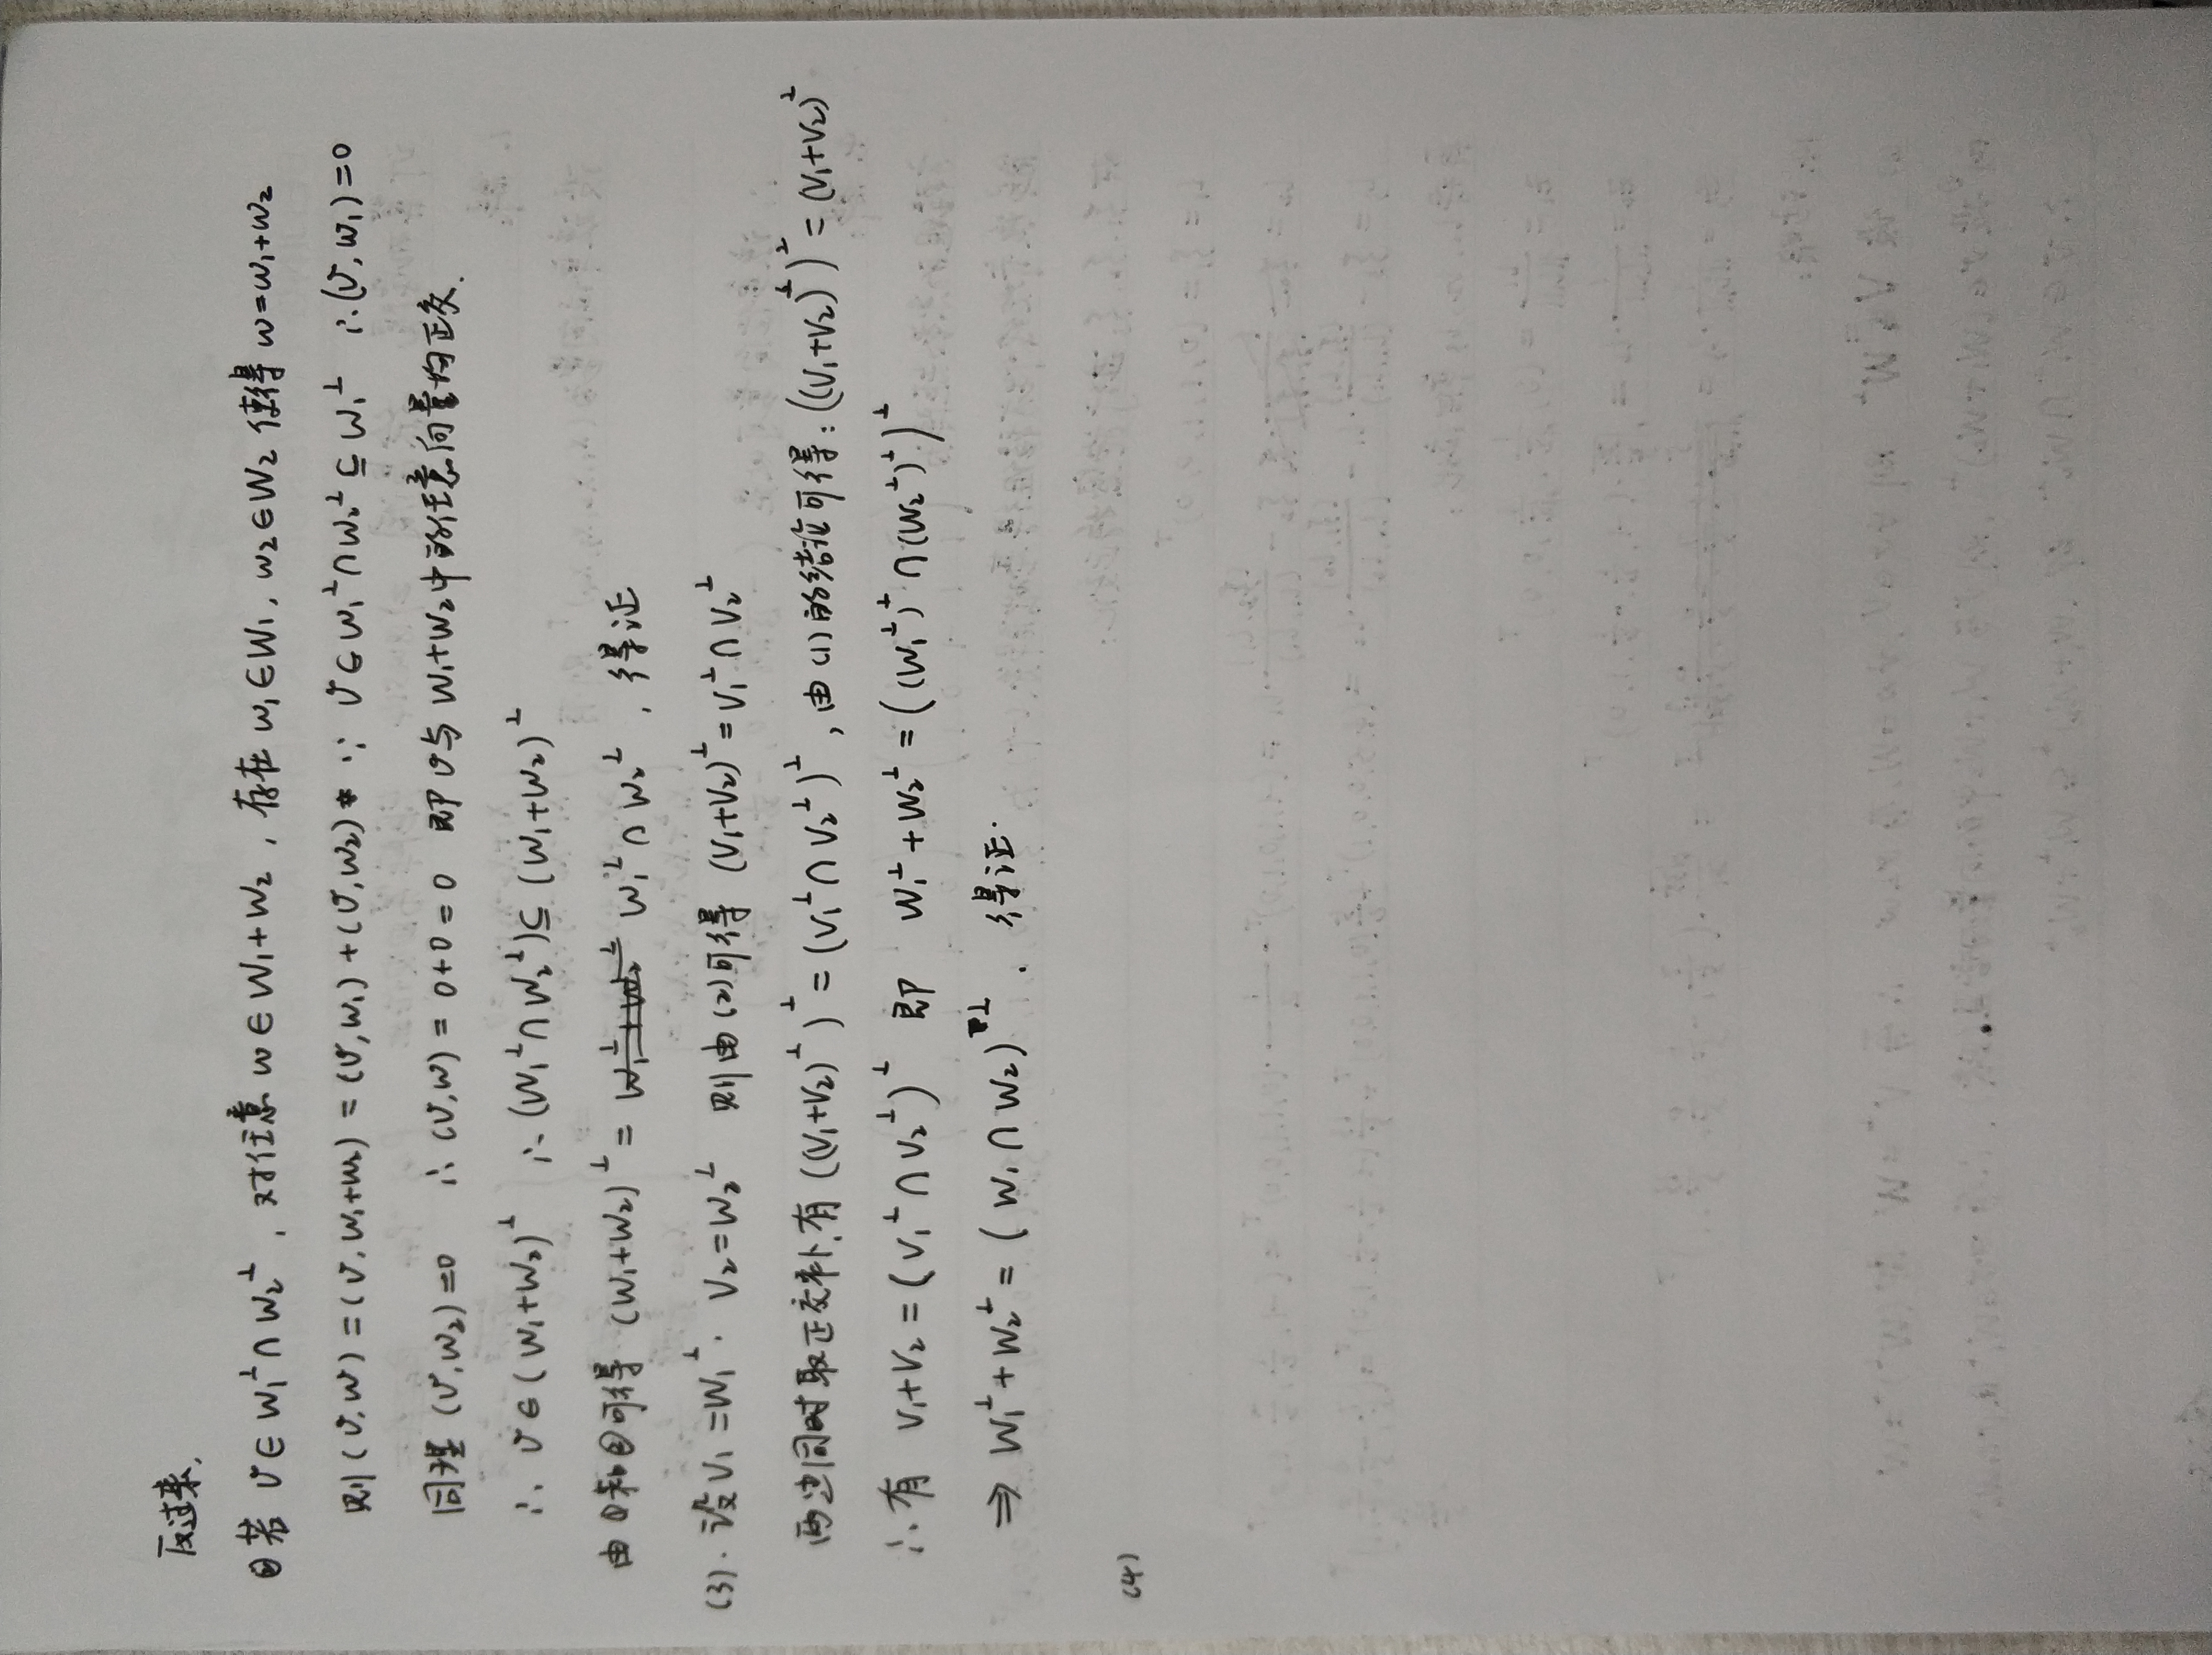 反过来,
②若 v∈W₁^⊥∩W₂^⊥, 对任意 w∈W₁+W₂, 存在 w₁∈W₁, w₂∈W₂ 使得 w=w₁+w₂
则(v,w)=(v,w₁+w₂)=(v,w₁)+(v,w₂) ∵ v∈W₁^⊥∩W₂^⊥⊆W₁^⊥ ∴(v,w₁)=0
同理 (v,w₂)=0 ∴(v,w)=0+0=0 即v与W₁+W₂中的任意向量均正交.
∴ v∈(W₁+W₂)^⊥ ∴(W₁^⊥∩W₂^⊥)⊆(W₁+W₂)^⊥
由①和②可得 (W₁+W₂)^⊥ = W₁^⊥∩W₂^⊥, 得证
(3). 设V₁=W₁^⊥. V₂=W₂^⊥ 则由(2)可得 (V₁+V₂)^⊥=V₁^⊥∩V₂^⊥
两边同时取正交补.有((V₁+V₂)^⊥)^⊥=(V₁^⊥∩V₂^⊥)^⊥, 由(1)的结论可得:((V₁+V₂)^⊥)^⊥=(V₁+V₂)
∴有 V₁+V₂=(V₁^⊥∩V₂^⊥)^⊥ 即 W₁^⊥+W₂^⊥=((W₁^⊥)^⊥∩(W₂^⊥)^⊥)^⊥
⇒ W₁^⊥+W₂^⊥=(W₁∩W₂)^⊥. 得证.
(4)